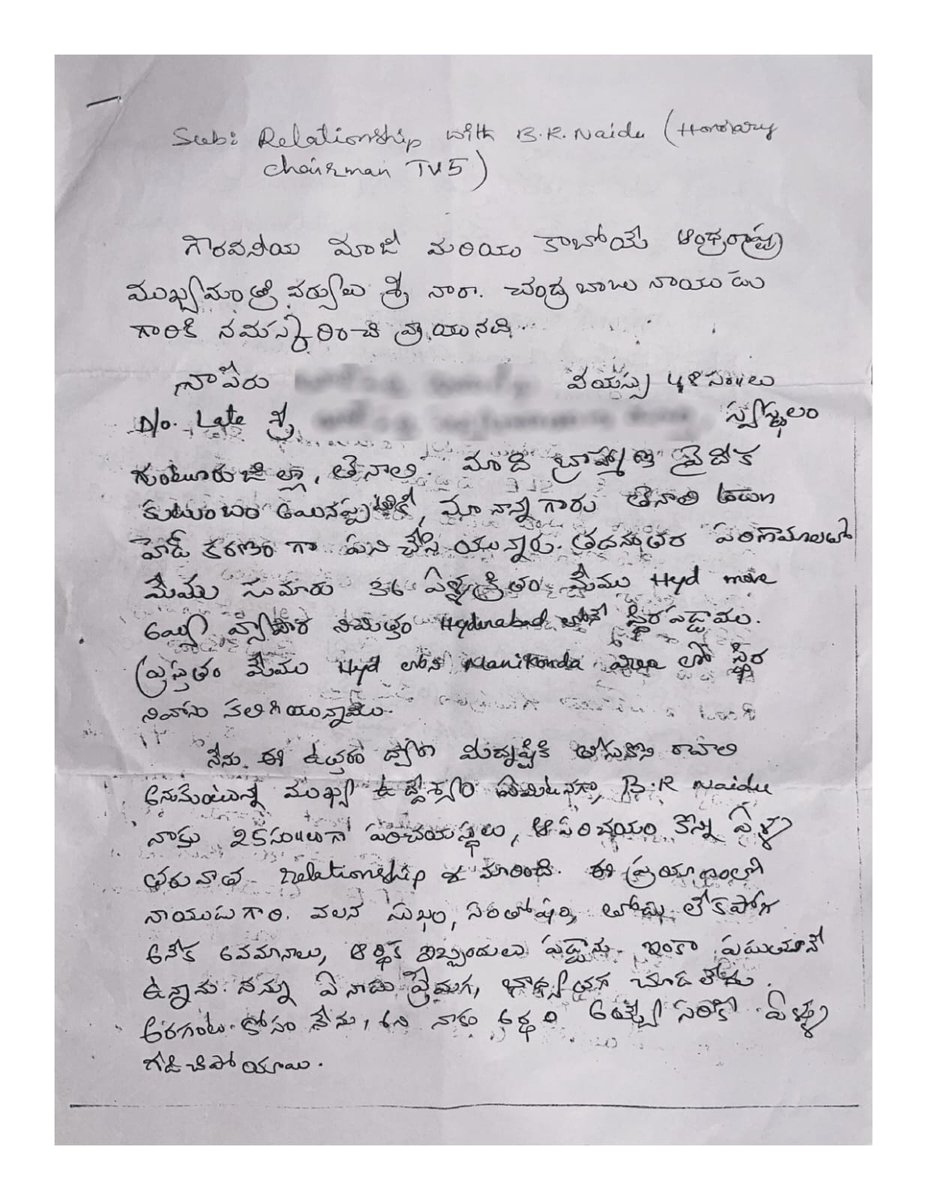 Sub: Relationship with B.R. Naidu (Honorary
Chairman TV5)
గౌరవనీయ మాజీ మరియు కాబోయే ఆంధ్రరాష్ట్ర
ముఖ్యమంత్రి వర్యులు శ్రీ నారా. చంద్రబాబు నాయుడు
గారికి నమస్కరించి వ్రాయునది.
నా పేరు వయస్సు 48 సం॥లు
D/o. Late శ్రీ స్వస్థలం
గుంటూరుజిల్లా, తెనాలి. మాది బ్రాహ్మణ వైదిక
కుటుంబం అయినప్పటికీ, మా నాన్నగారు తెనాలి town
హెడ్ కరణం గా పని చేసి యున్నారు. తదనంతర పరిణామాలతో
మేము సుమారు 36 ఏళ్ళక్రితం మేము Hyd move
అయ్యి వ్యాపార నిమిత్తం Hyderabad లోనే స్థిరపడ్డాము.
ప్రస్తుతం మేము Hyd లోని Manikonda విల్లా లో స్థిర
నివాసం కలిగియున్నాము.
నేను. ఈ ఉత్తరం ద్వారా మీదృష్టికి తీసుకొని రావాలి
అనుకుంటున్న ముఖ్య ఉద్దేశ్యం ఏమిటనగా, B.R Naidu
నాకు 25సం॥లుగా పరిచయస్థులు, ఆ పరిచయం కొన్ని ఏళ్ళ
తరువాత relationship గా మారింది. ఈ ప్రయాణంలో
నాయుడు గారి. వలన సుఖం, సంతోషం, తోడు లేకపోగ
అనేక అవమానాలు, ఆర్థిక ఇబ్బందులు పడ్డాను. ఇంకా పడుతూనే
ఉన్నాను. నన్ను ఏ నాడు ప్రేమగ, బాధ్యతగ చూడలేదు.
అరగంట కోసం నేను, అని నాకు అర్థం అయ్యే సరికి ఏళ్ళు
గడిచిపోయాయి.